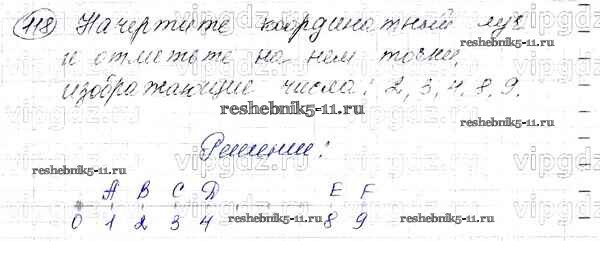 118 Начертите координатный луч
и отметьте на нем точки,
изображающие числа: 2, 3, 4, 8, 9.
reshebnik5-11.ru
reshebnik5-11.ru
Решение:
reshebnik5-11.ru
A B C D E F
0 1 2 3 4 8 9
reshebnik5-11.ru
reshebnik5-11.ru
vipgdz